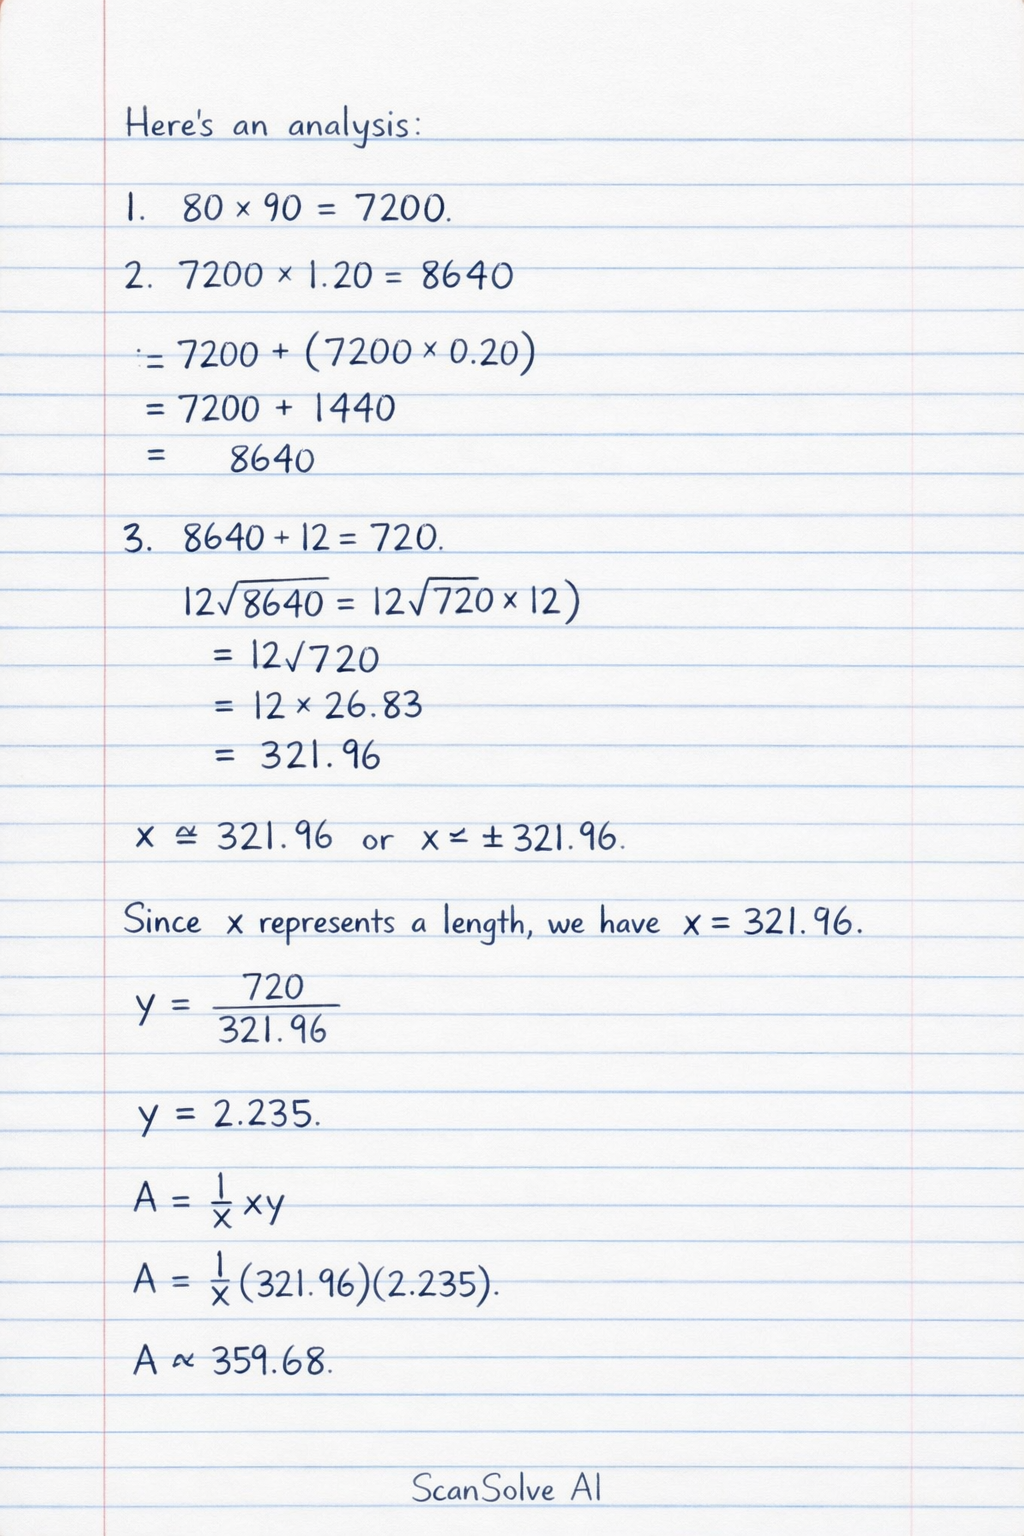 Here's an analysis:
1. 80 × 90 = 7200.
2. 7200 × 1.20 = 8640
:= 7200 + (7200 × 0.20)
= 7200 + 1440
= 8640
3. 8640 + 12 = 720.
12√8640 = 12√720 × 12)
= 12√720
= 12 × 26.83
= 321.96
x ≅ 321.96 or x ≚ ± 321.96.
Since x represents a length, we have x = 321.96.
y = 720/321.96
y = 2.235.
A = 1/x xy
A = 1/x (321.96)(2.235).
A ∝ 359.68.
ScanSolve AI